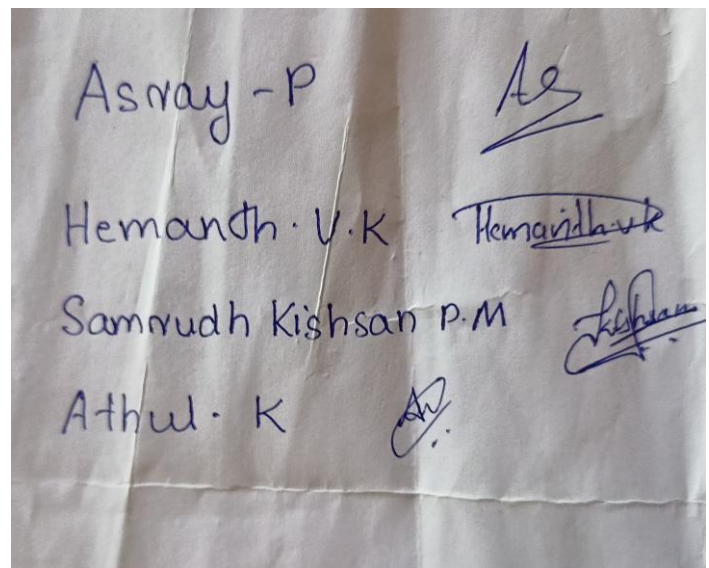 Asray - P As
Hemanth . V . K Hemanth.v.k
Samrudh Kishsan P.M
Athul . K